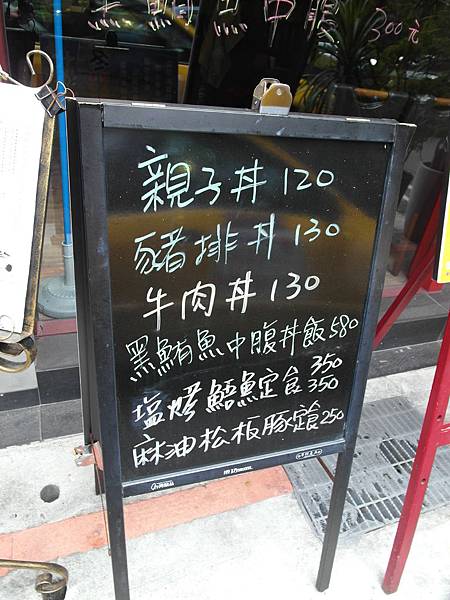 300元
親子丼 120
豬排丼 130
牛肉丼 130
黑鮪魚中腹丼飯 580
350
塩烤鱈魚定食 350
麻油松板豚定食 250